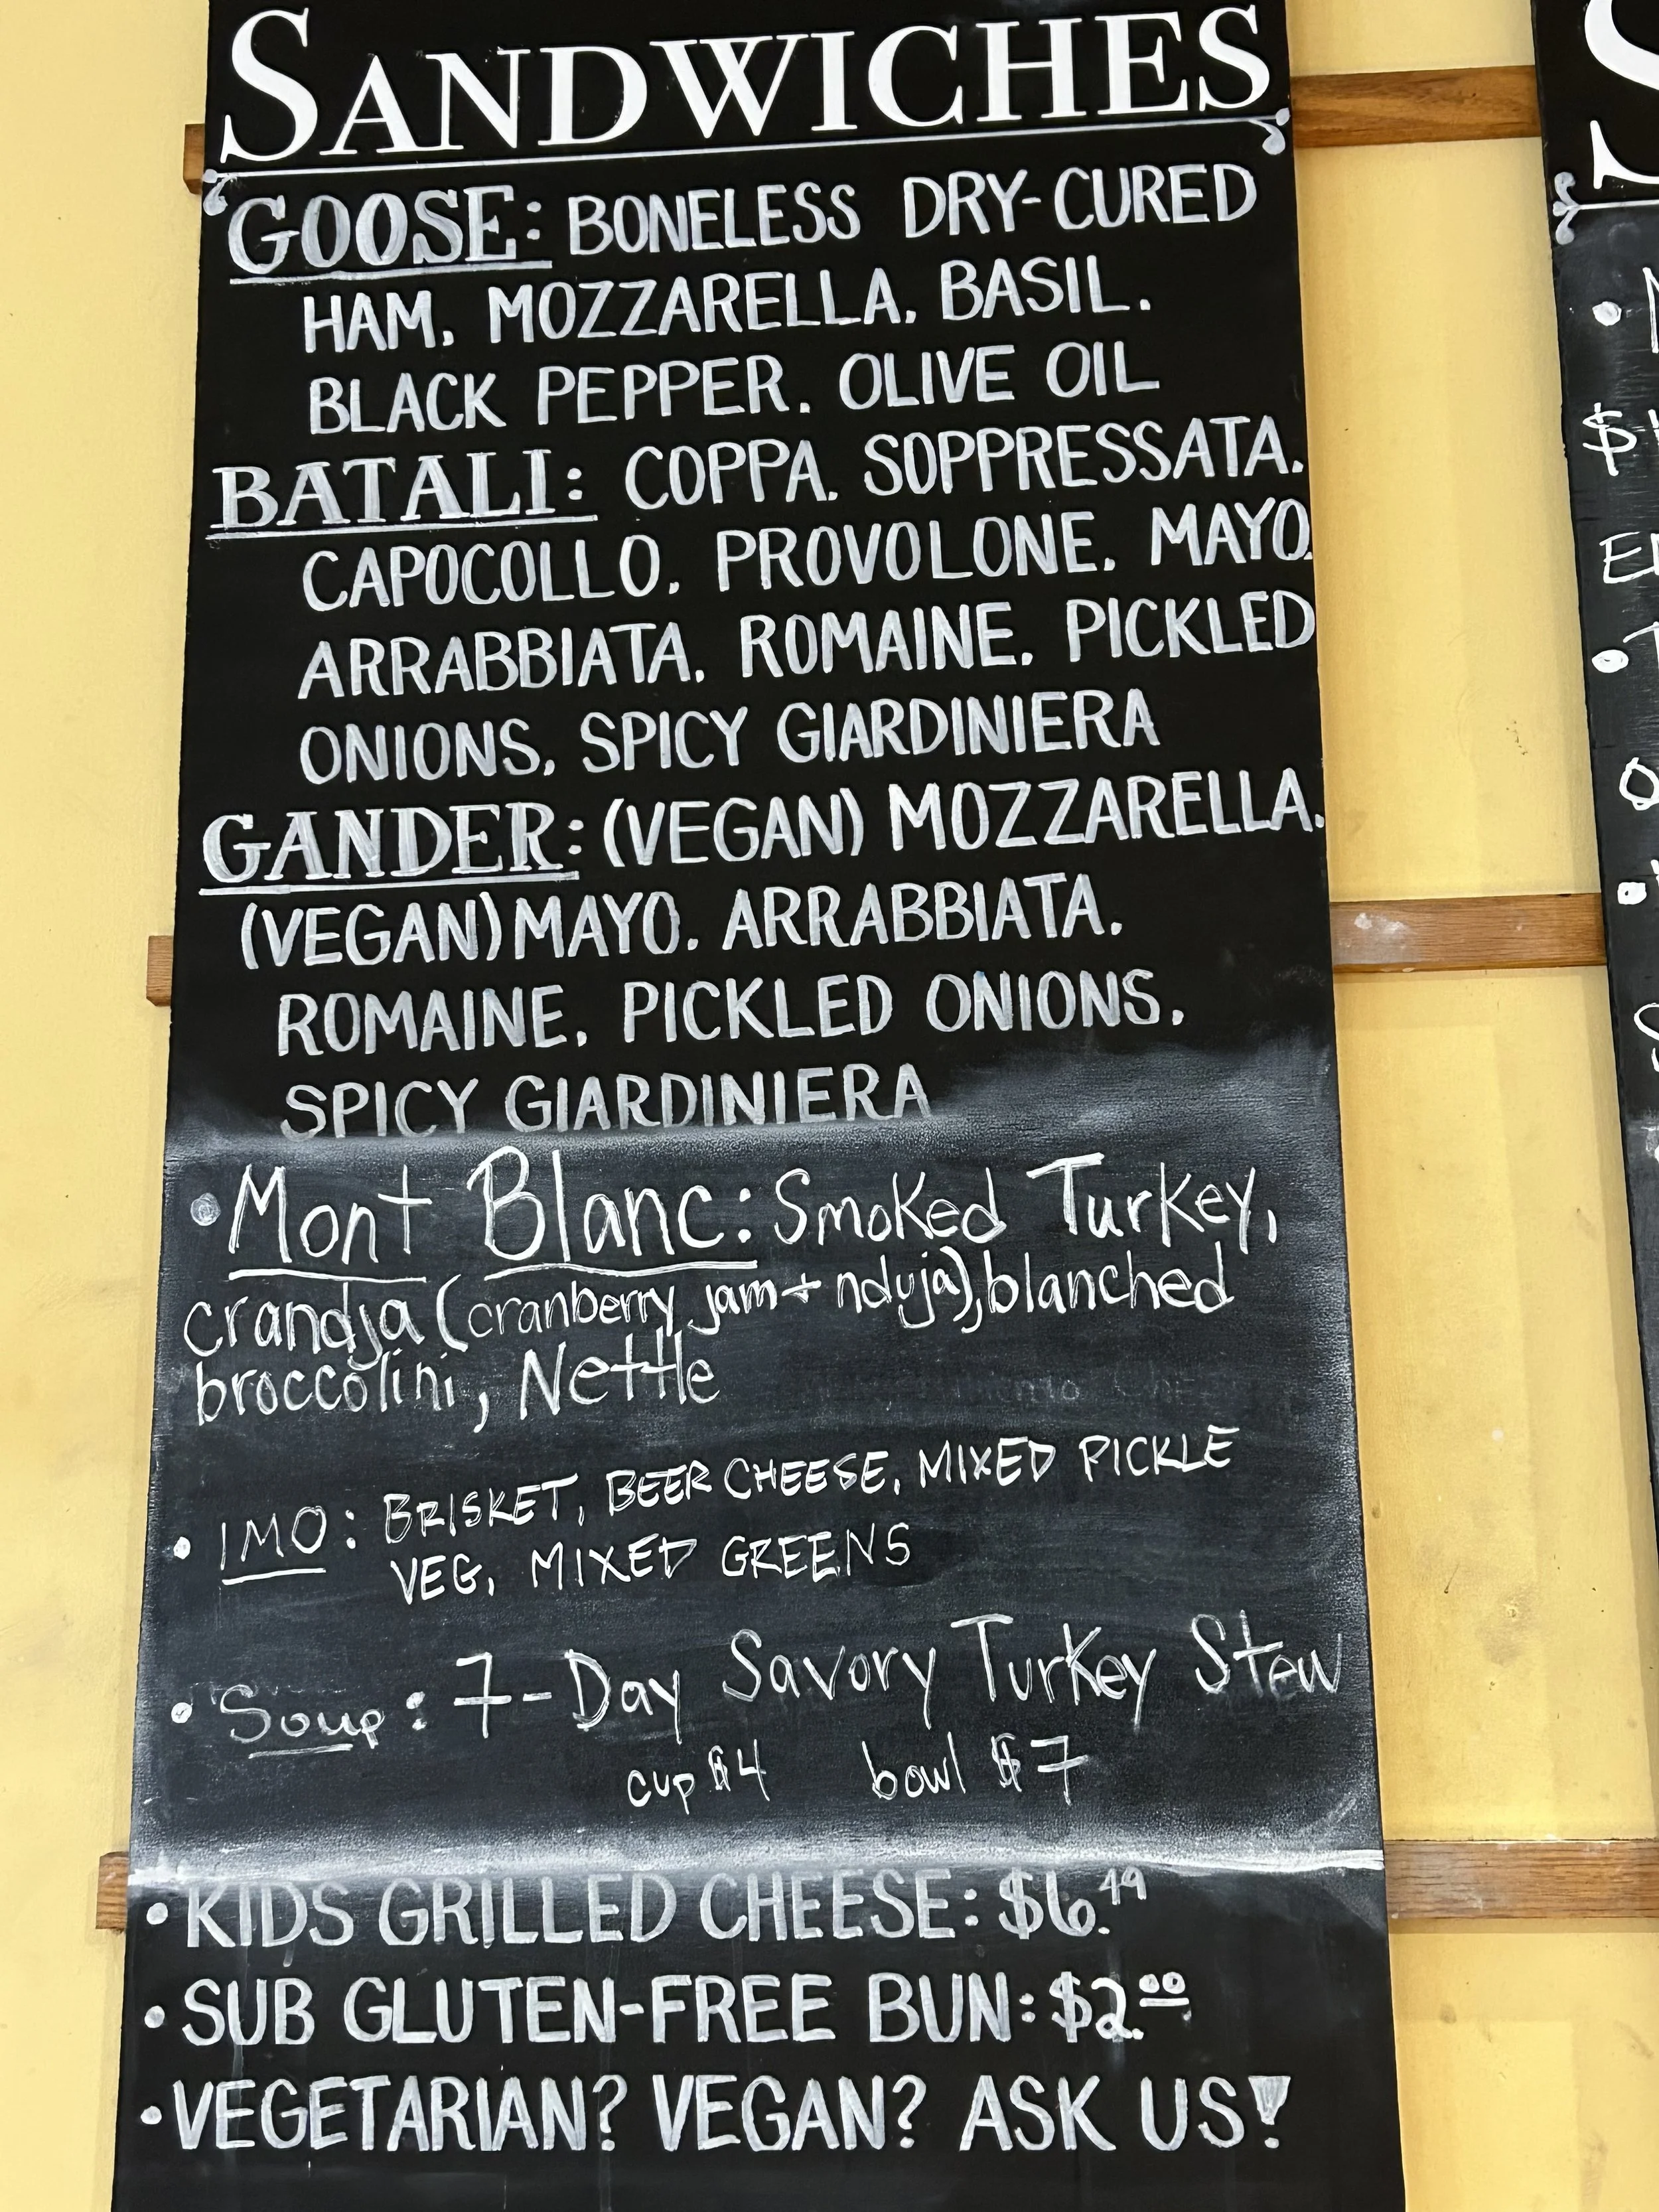 SANDWICHES
GOOSE: BONELESS DRY-CURED
HAM. MOZZARELLA. BASIL.
BLACK PEPPER. OLIVE OIL
BATALI: COPPA. SOPPRESSATA.
CAPOCOLLO. PROVOLONE. MAYO.
ARRABBIATA. ROMAINE. PICKLED
ONIONS. SPICY GIARDINIERA
GANDER: (VEGAN) MOZZARELLA.
(VEGAN) MAYO. ARRABBIATA.
ROMAINE. PICKLED ONIONS.
SPICY GIARDINIERA
• Mont Blanc: Smoked Turkey,
crandja (cranberry jam + nduja), blanched
broccolini, Nettle
• IMO: BRISKET, BEER CHEESE, MIXED PICKLE
VEG, MIXED GREENS
• Soup: 7-Day Savory Turkey Stew
cup $4 bowl $7
• KIDS GRILLED CHEESE: $6.49
• SUB GLUTEN-FREE BUN: $2.00
• VEGETARIAN? VEGAN? ASK US!